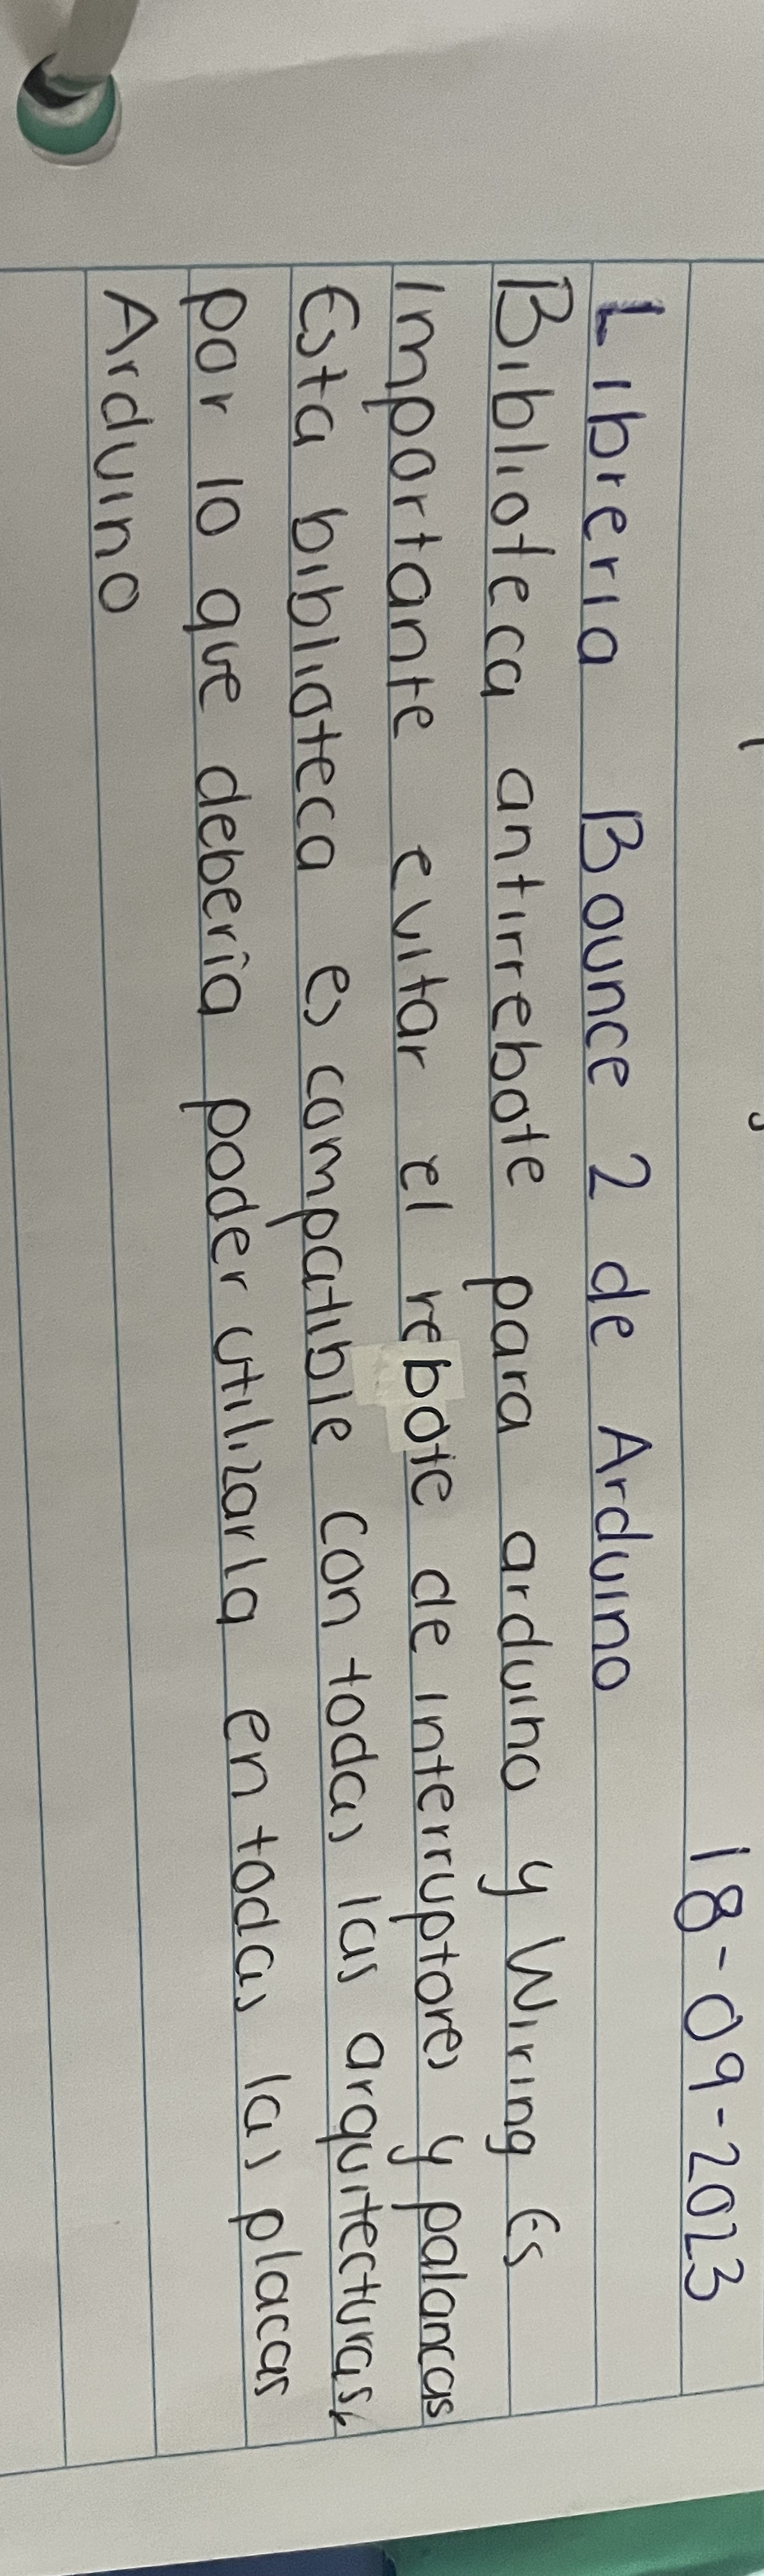 18-09-2023
Libreria Bounce 2 de Arduino
Biblioteca antirrebote para arduino y Wiring Es
Importante evitar el rebote de interruptores y palancas
Esta biblioteca es compatible con todas las arquitecturas,
por lo que debería poder utilizarla en todas las placas
Arduino